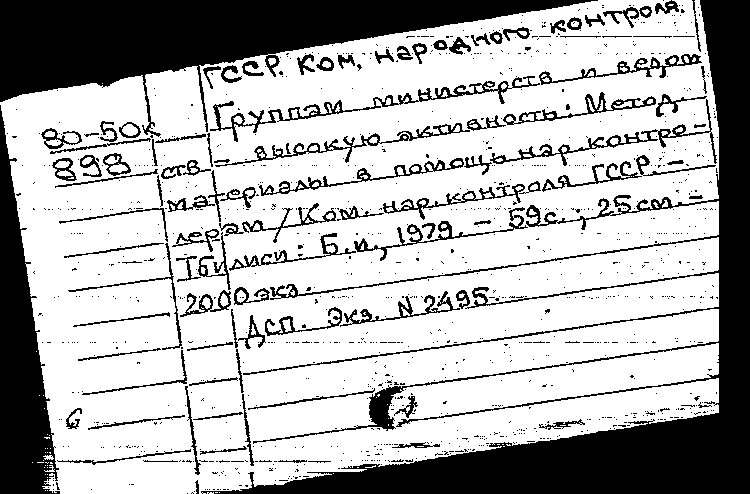 ГССР. Ком. народного контроля.
Группам министерств и ведом
80-50к
ств – высокую активность: Метод.
898
материалы в помощь нар. контро-
лерам / Ком. нар. контроля ГССР. –
Тбилиси: Б.и., 1979. – 59с.; 25см. –
2000 экз.
Дсп. Экз. N 2495.
G